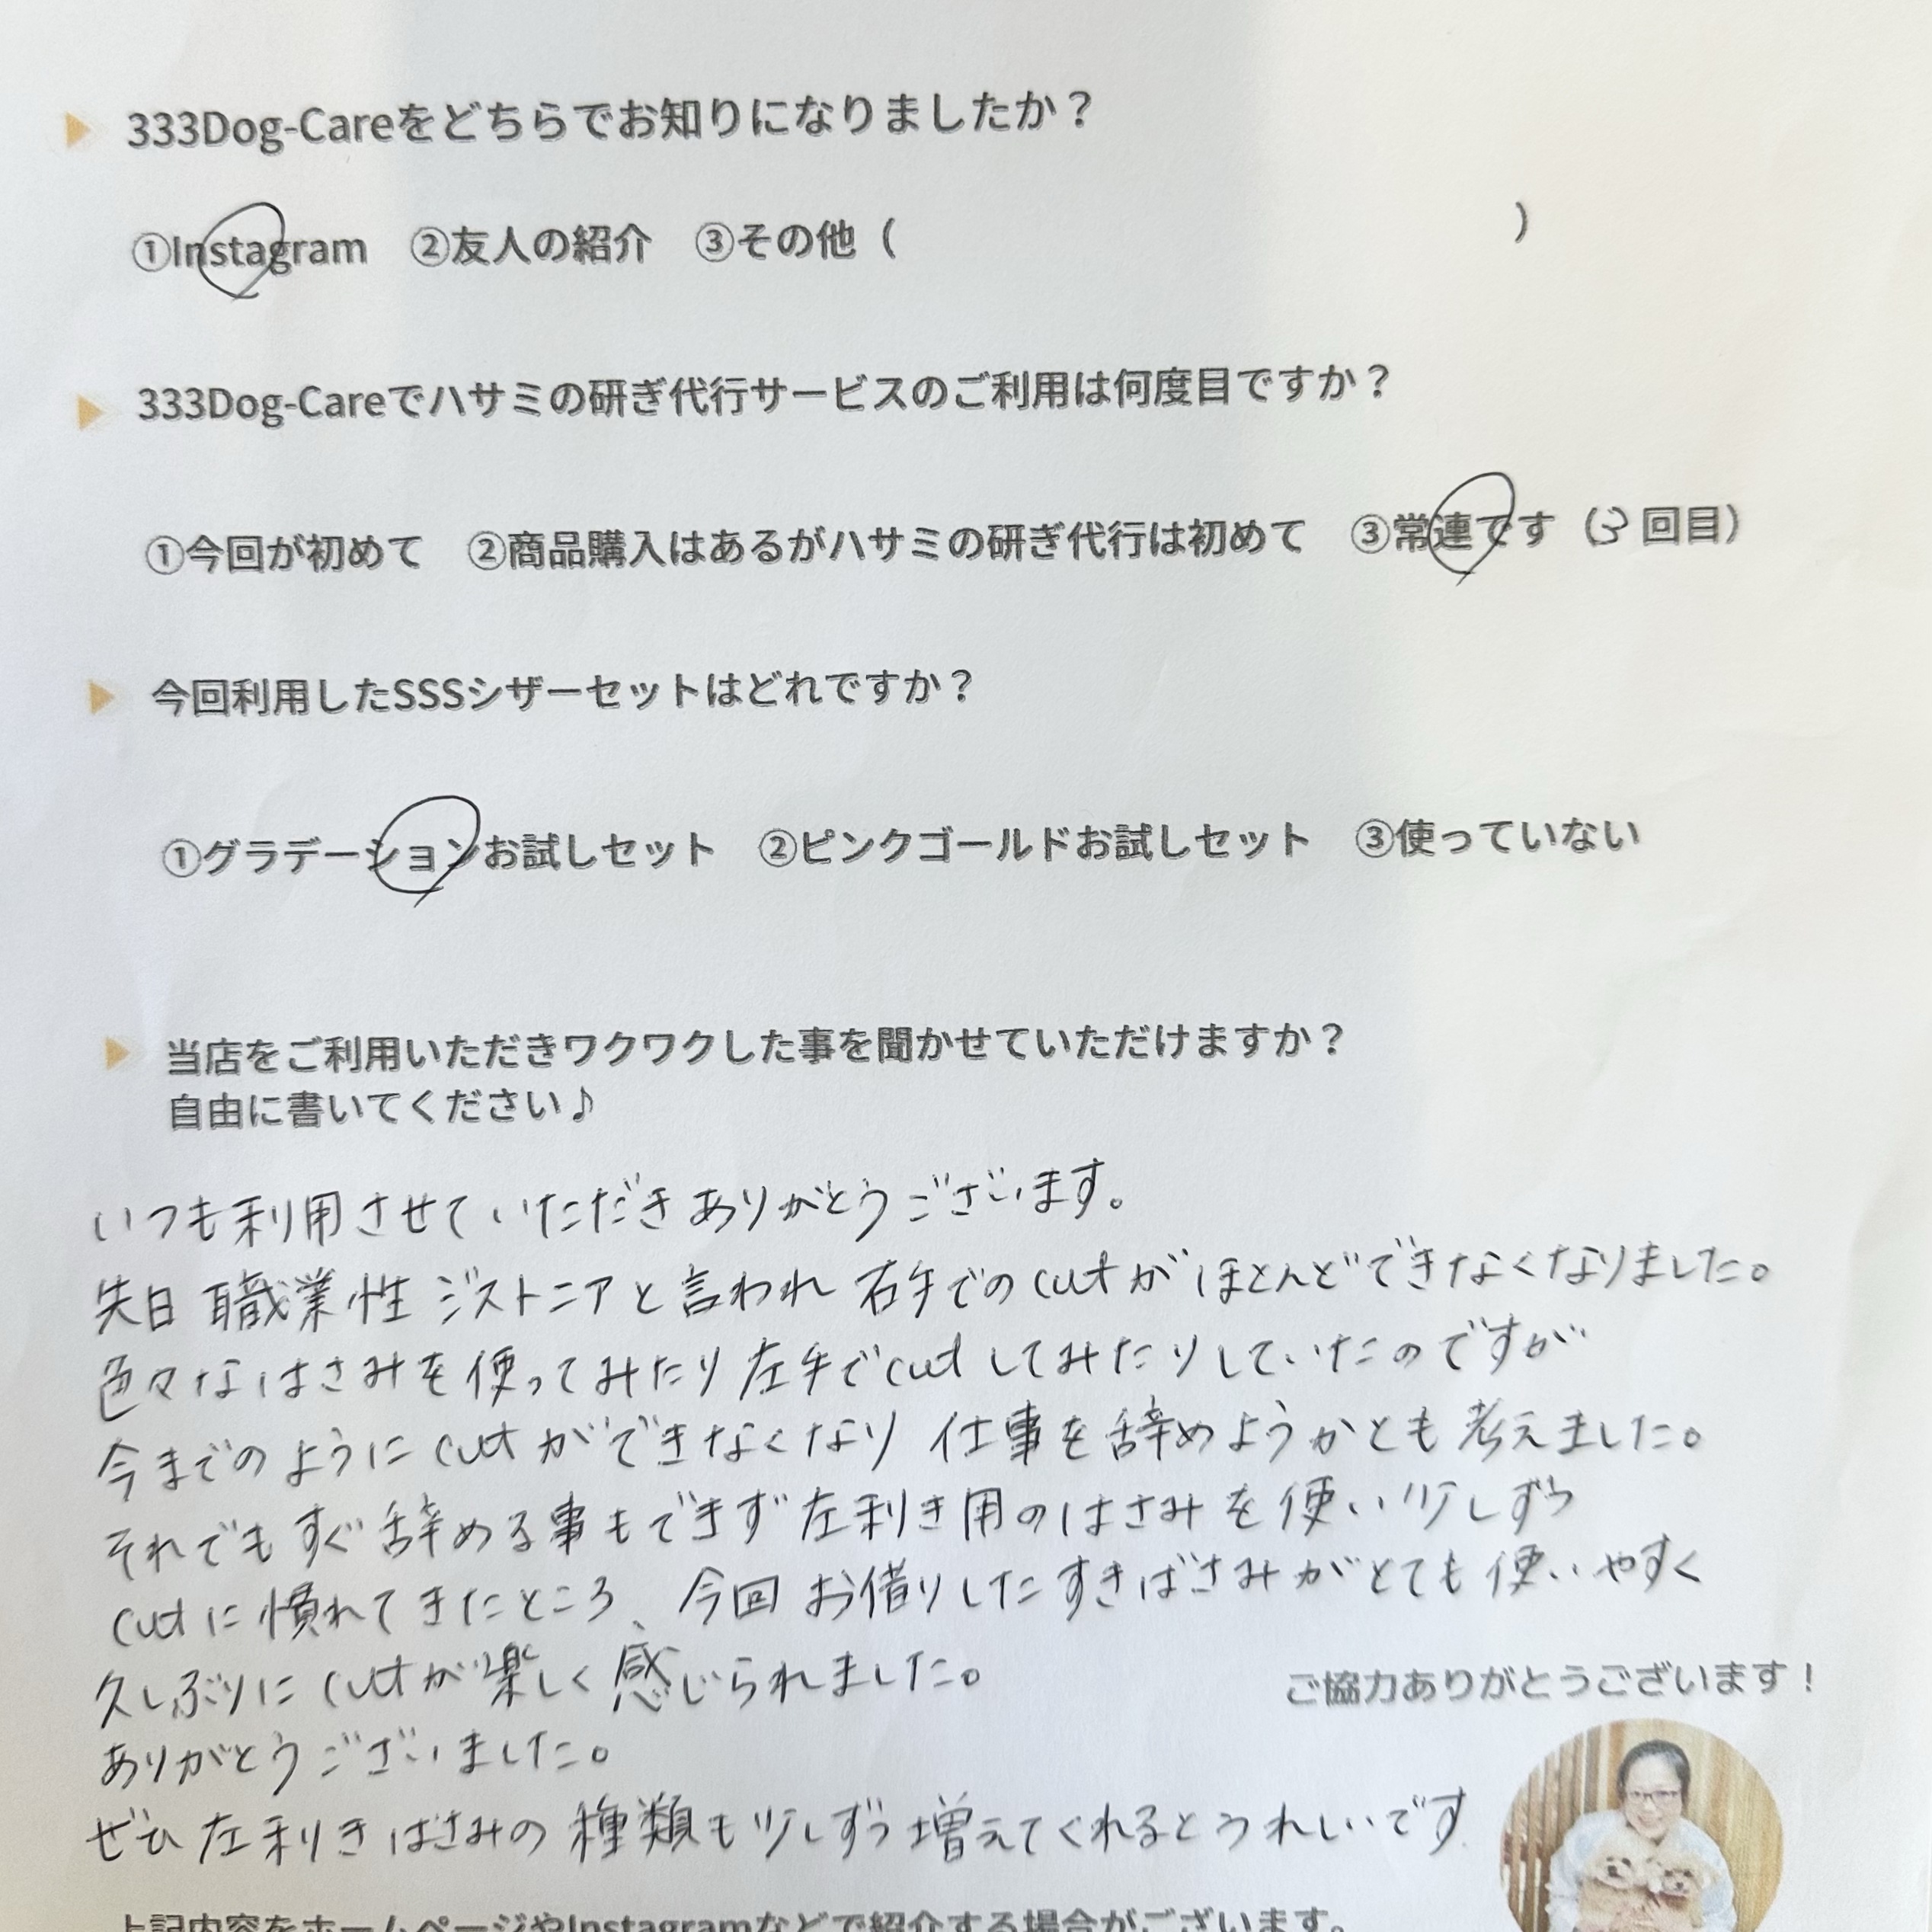 333Dog-Careをどちらでお知りになりましたか？
①Instagram ②友人の紹介 ③その他（ ）
333Dog-Careでハサミの研ぎ代行サービスのご利用は何度目ですか？
①今回が初めて ②商品購入はあるがハサミの研ぎ代行は初めて ③常連です（3回目）
今回利用したSSSシザーセットはどれですか？
①グラデーションお試しセット ②ピンクゴールドお試しセット ③使っていない
当店をご利用いただきワクワクした事を聞かせていただけますか？
自由に書いてください♪
いつも利用させていただきありがとうございます。
先日 職業性ジストニアと言われ 右手でのcutがほとんどできなくなりました。
色々なはさみを使ってみたり左手でcutしてみたりしていたのですが
今までのようにcutができなくなり 仕事を辞めようかとも考えました。
それでもすぐ辞める事もできず左利き用のはさみを使い少しずつ
cutに慣れてきたところ、今回お借りしたすきばさみがとても使いやすく
久しぶりにcutが楽しく感じられました。
ご協力ありがとうございます！
ありがとうございました。
ぜひ左利きばさみの種類も少しずつ増えてくれるとうれしいです
上記内容をホームページやInstagramなどで紹介する場合がございます。